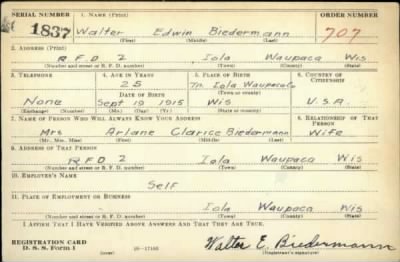 SERIAL NUMBER 1. NAME (Print) ORDER NUMBER
1837 Walter Edwin Biedermann 707
(First) (Middle) (Last)
2. ADDRESS (Print)
RFD 2 Iola Waupaca Wis
(Number and street or R. F. D. number) (Town) (County) (State)
3. TELEPHONE 4. AGE IN YEARS 5. PLACE OF BIRTH 6. COUNTRY OF CITIZENSHIP
25 Tn. Iola Waupaca Co
DATE OF BIRTH (Town or county)
None Sept 19 1915 Wis U.S.A.
(Exchange) (Number) (Mo.) (Day) (Yr.) (State or country)
7. NAME OF PERSON WHO WILL ALWAYS KNOW YOUR ADDRESS 8. RELATIONSHIP OF THAT PERSON
Mrs Arlane Clarice Biedermann Wife
(Mr., Mrs., Miss) (First) (Middle) (Last)
9. ADDRESS OF THAT PERSON
RFD 2 Iola Waupaca Wis
(Number and street or R. F. D. number) (Town) (County) (State)
10. EMPLOYER'S NAME
Self
11. PLACE OF EMPLOYMENT OR BUSINESS
(Number and street or R. F. D. number) (Town) (County) (State)
I AFFIRM THAT I HAVE VERIFIED ABOVE ANSWERS AND THAT THEY ARE TRUE.
REGISTRATION CARD
D. S. S. Form 1 Walter E. Biedermann